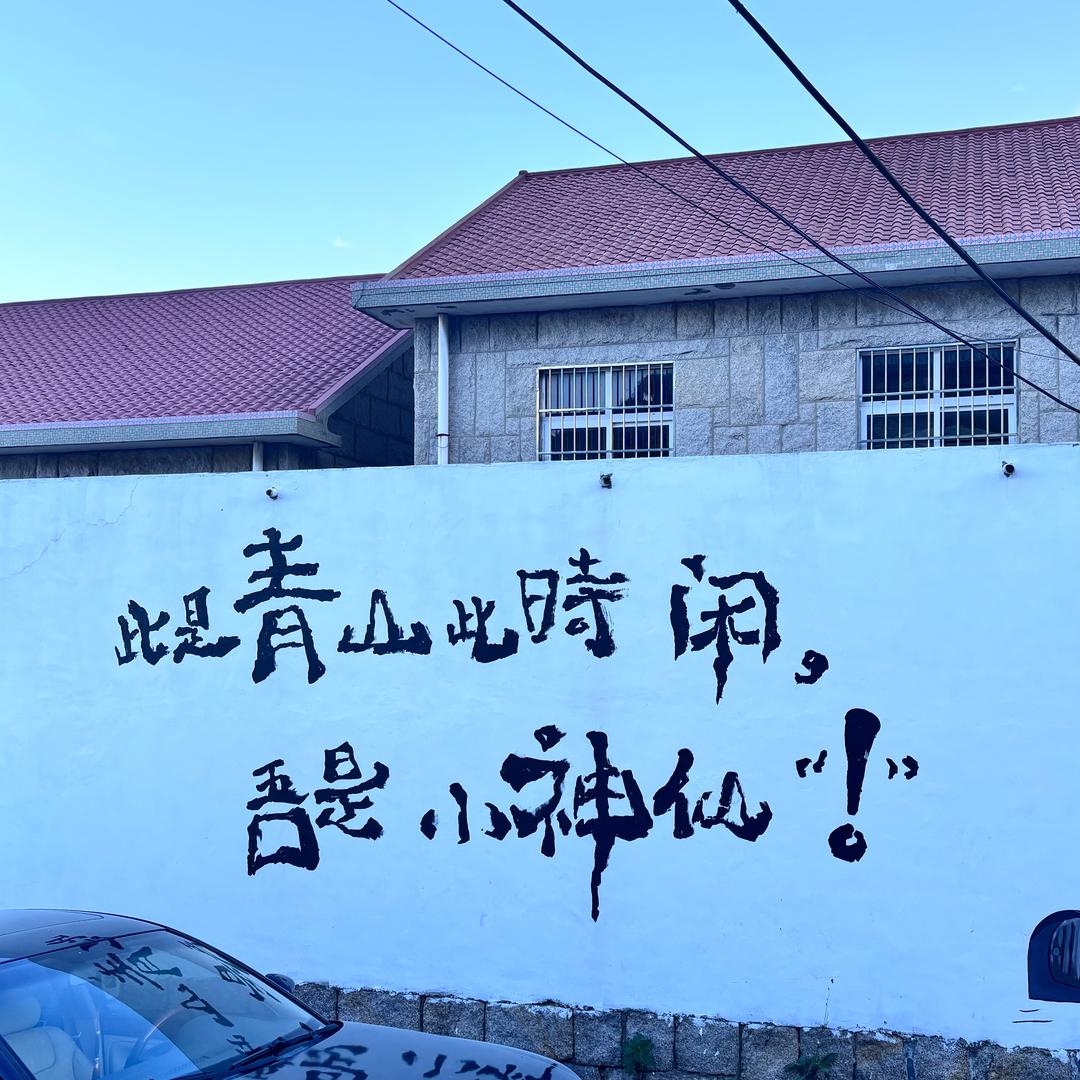 此是青山此時闲，
吾是小神仙“！”